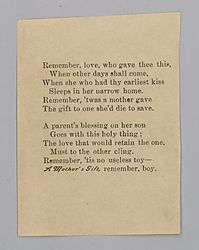 Remember, love, who gave thee this,
When other days shall come,
When she who had thy earliest kiss
Sleeps in her narrow home.
Remember, 'twas a mother gave
The gift to one she'd die to save.
A parent's blessing on her son
Goes with this holy thing;
The love that would retain the one,
Must to the other cling.
Remember, 'tis no useless toy—
A Mother's Gift, remember, boy.